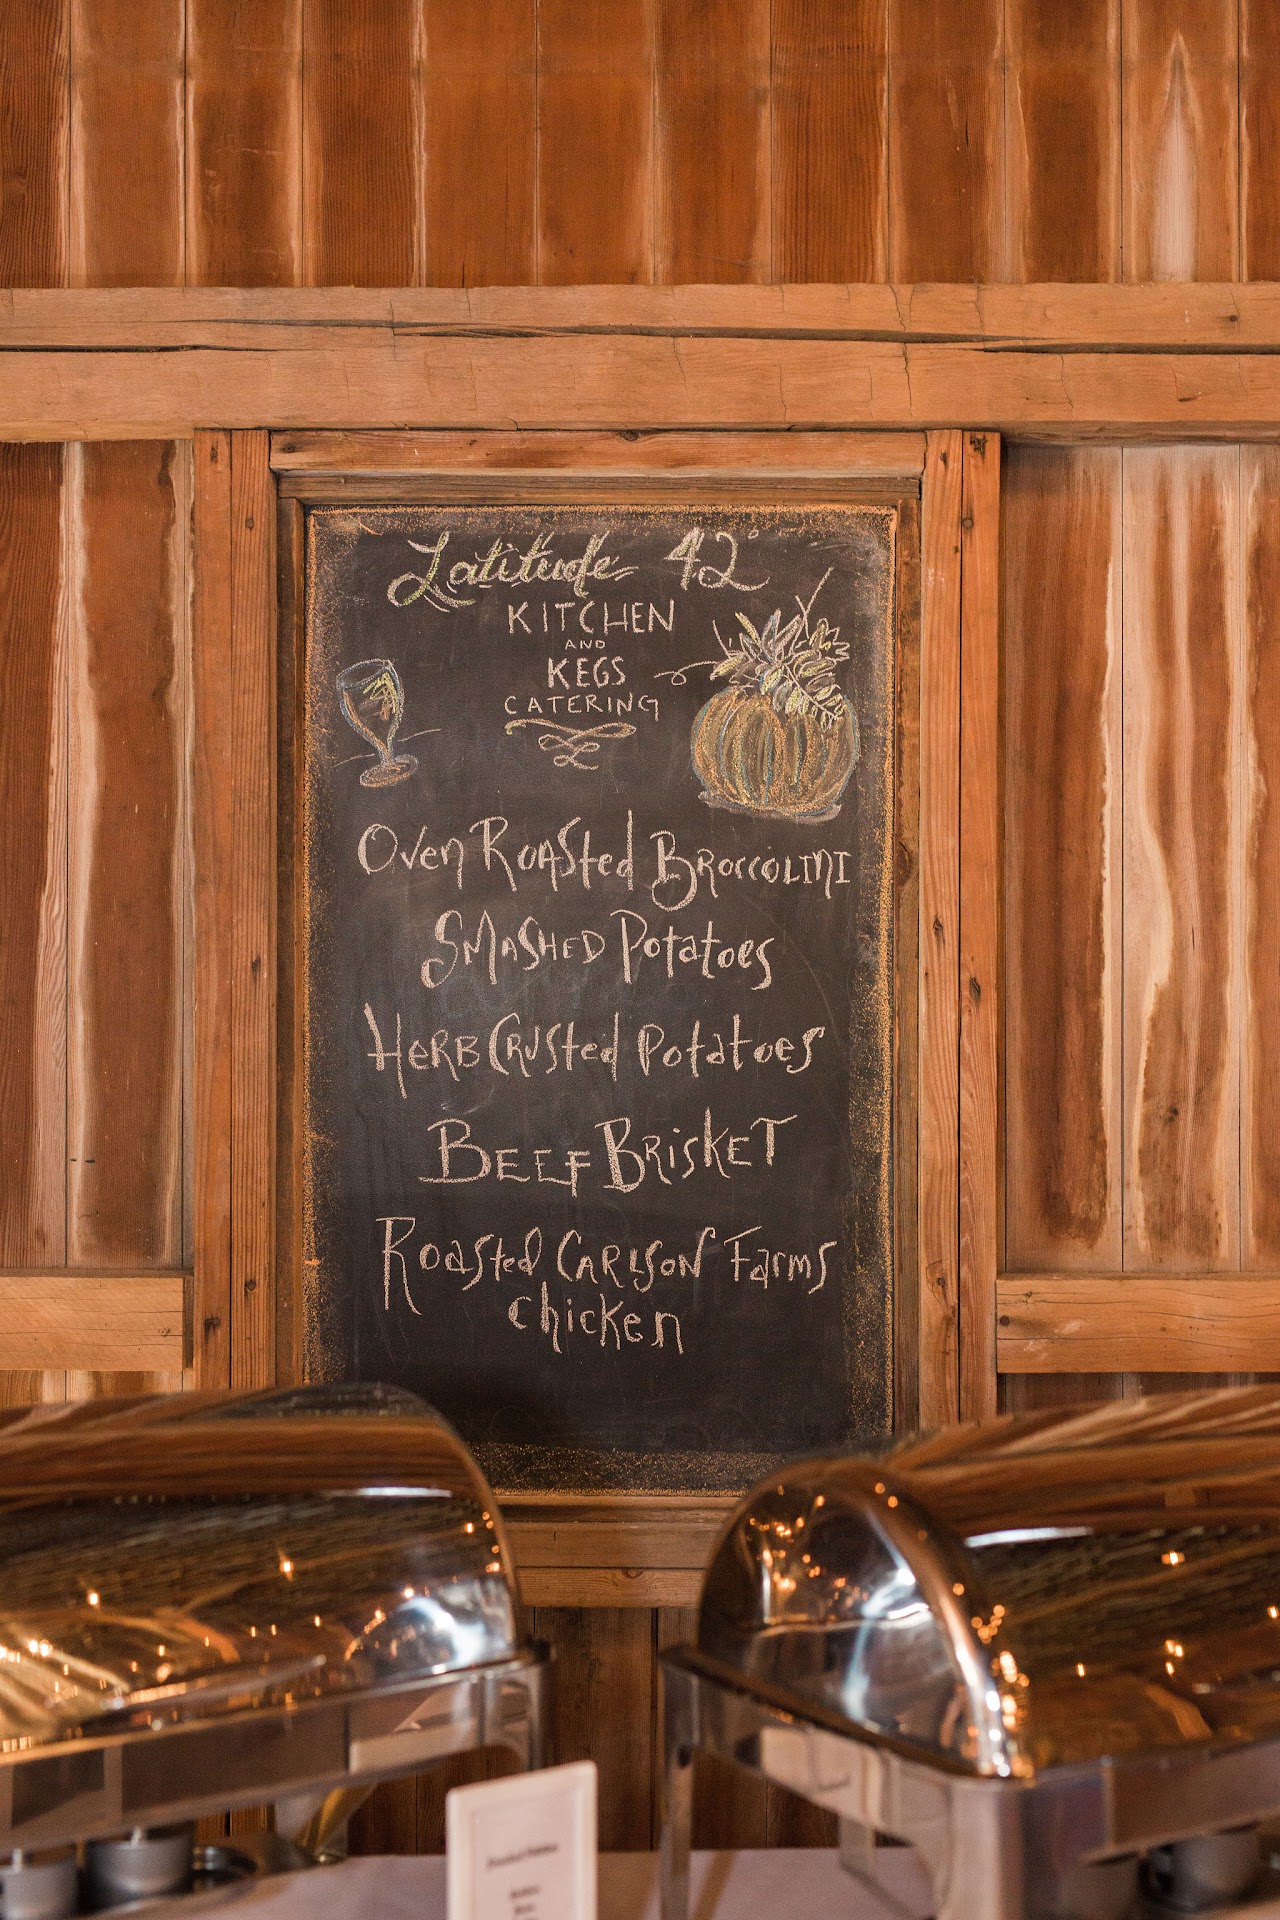 Latitude 42°
KITCHEN
AND
KEGS
CATERING
Oven Roasted Broccolini
Smashed Potatoes
Herb Crusted Potatoes
Beef Brisket
Roasted Carlson Farms
chicken